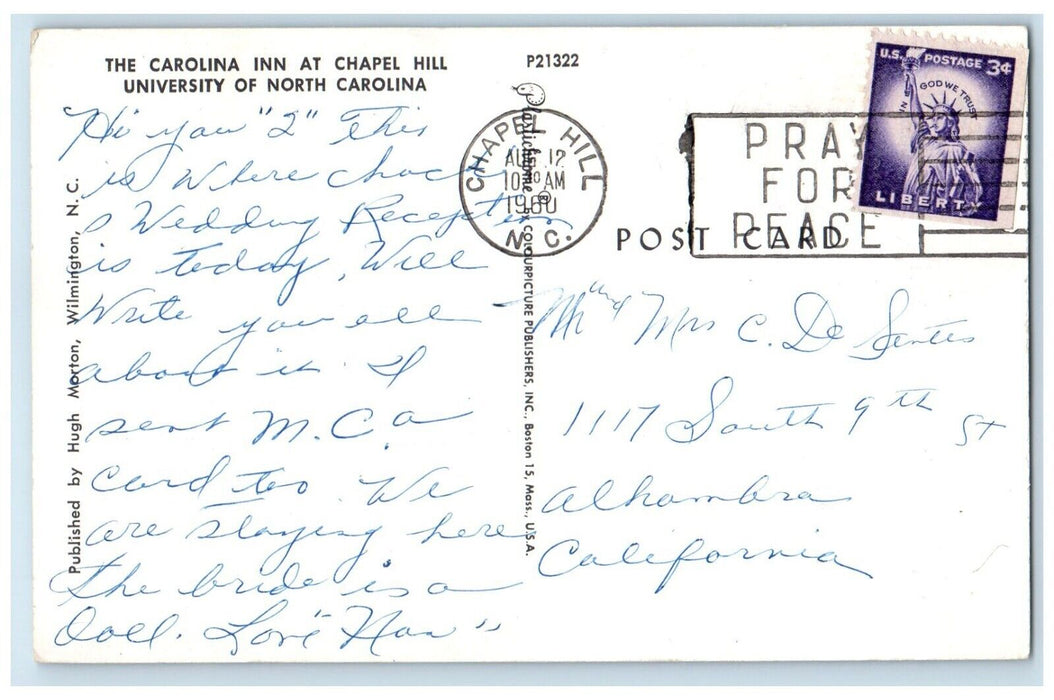 THE CAROLINA INN AT CHAPEL HILL
UNIVERSITY OF NORTH CAROLINA
P21322
Hi you "2" This
is Where
s Wedding Reception
is today. Will
Write you all
about it. I
sent M. C. a
card too. We
are staying here
the bride is a
Doll. Love "Nan"
Published by Hugh Morton, Wilmington, N. C.
Plastichrome ® BY COLOURPICTURE PUBLISHERS, INC., Boston 15, Mass., U.S.A.
CHAPEL HILL
AUG 12
10 AM
1960
N. C.
PRAY
FOR
PEACE
U.S. POSTAGE 3¢
IN GOD WE TRUST
LIBERTY
POST CARD
Mr and Mrs C. De Sentes
1117 South 9th St
Alhambra
California